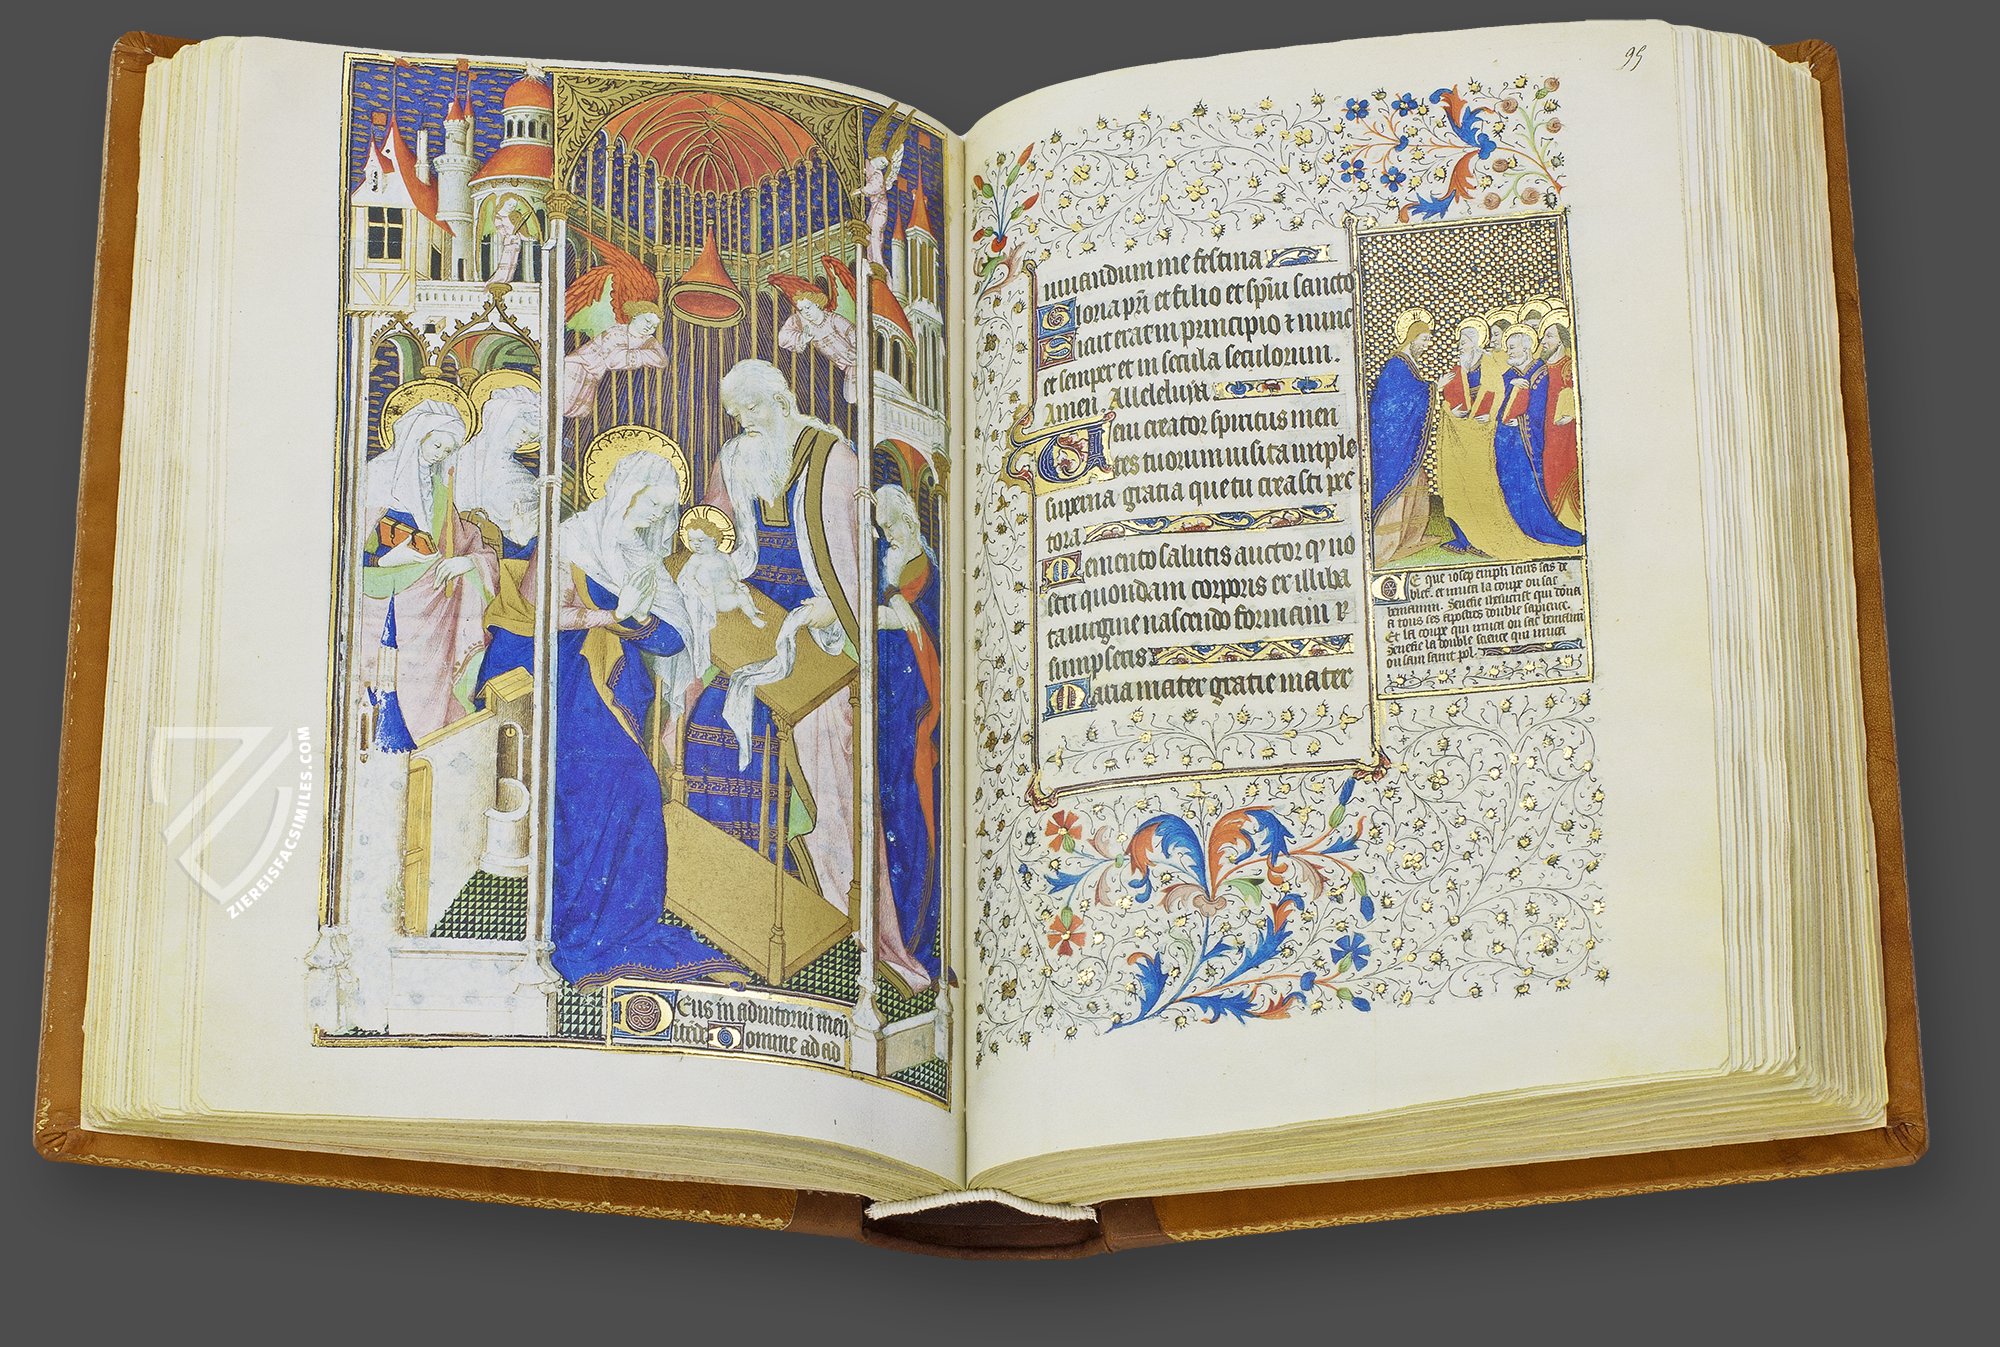 Eus in adiutoriu meu
itede Domine ad ad
95
iuuandum me festina
Gloria pri et filio et spiu sancto
Sicut erat in principio et nunc
et semper et in secula seculorum.
Amen. Alleluya
Ueni creator spiritus men
tes tuorum uisita imple
superna gratia que tu creasti pec
tora
Memento salutis auctor qp no
stri quondam corporis ex illiba
ta uirgine nascendo formam
sumpseris
Maria mater gratie mater
Ce que iosep empli leurs sas de
ble. et muca la coupe ou sac
beniamin. Senefie ihesucrist qui dona
a tous ses apostres double sapience.
Et la coupe qui muca ou sac beniamin
Senefie la double science qui muca
ou sain saint pol.
ZIEREISFACSIMILES.COM